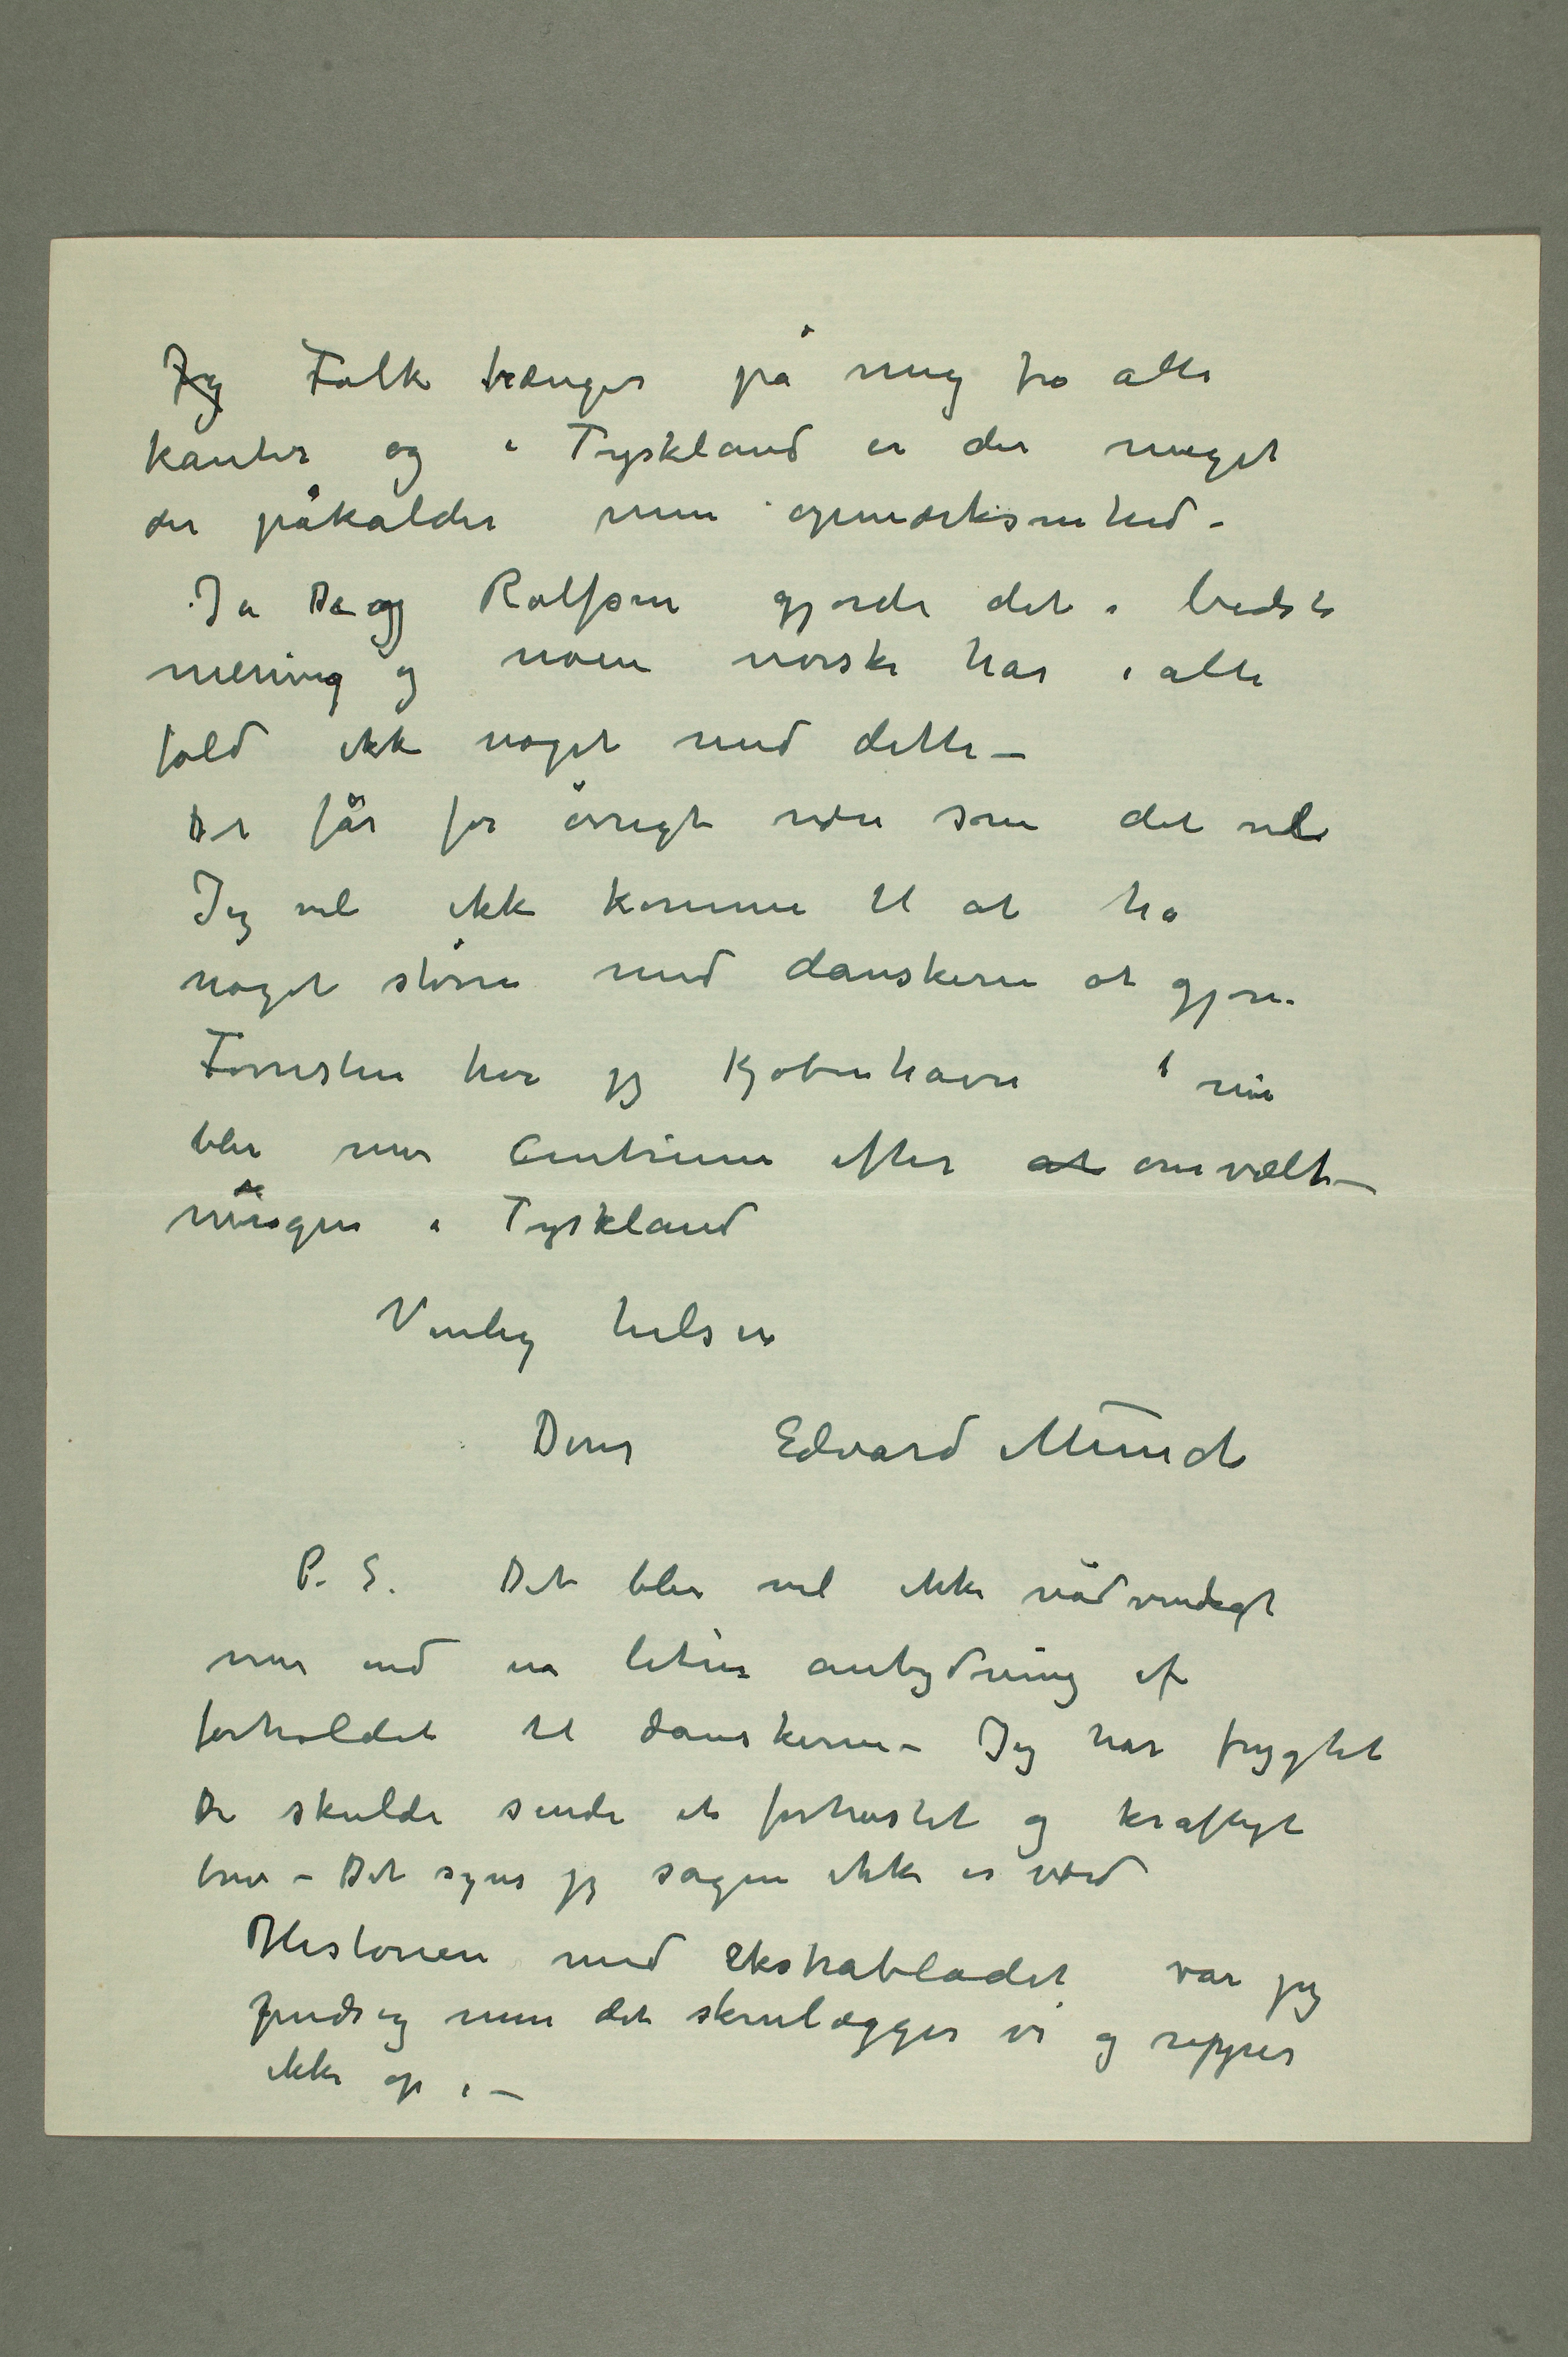 Jeg Folk trænger på mig fra alle
kanter og i Tyskland er der meget
der påkalder min opmærksomhed –
Ja De og Rolfsen gjorde det i bedste
mening og noen norske har i alle
fald ikke noget med dette –
Det får for øvrigt være som det vil
Jeg vil ikke komme til at ha
noget større med danskerne at gjøre
Forresten tror jeg Kjøbenhavn nu
blir mer Centrum efter at omvælt–
ningen i Tyskland
Venlig hilsen
Deres Edvard Munch
P. S. Det blir vel ikke nødvendigt
mer end en liten antydning af
forholdet til danskerne – Jeg har frygtet
De skulde sende et forhastet og kraftigt
brev – Det synes jeg sagen ikke er værd
Historien med Ekstrabladet var jo
pudsig men det skrinlægger vi og ripper
ikke op i –